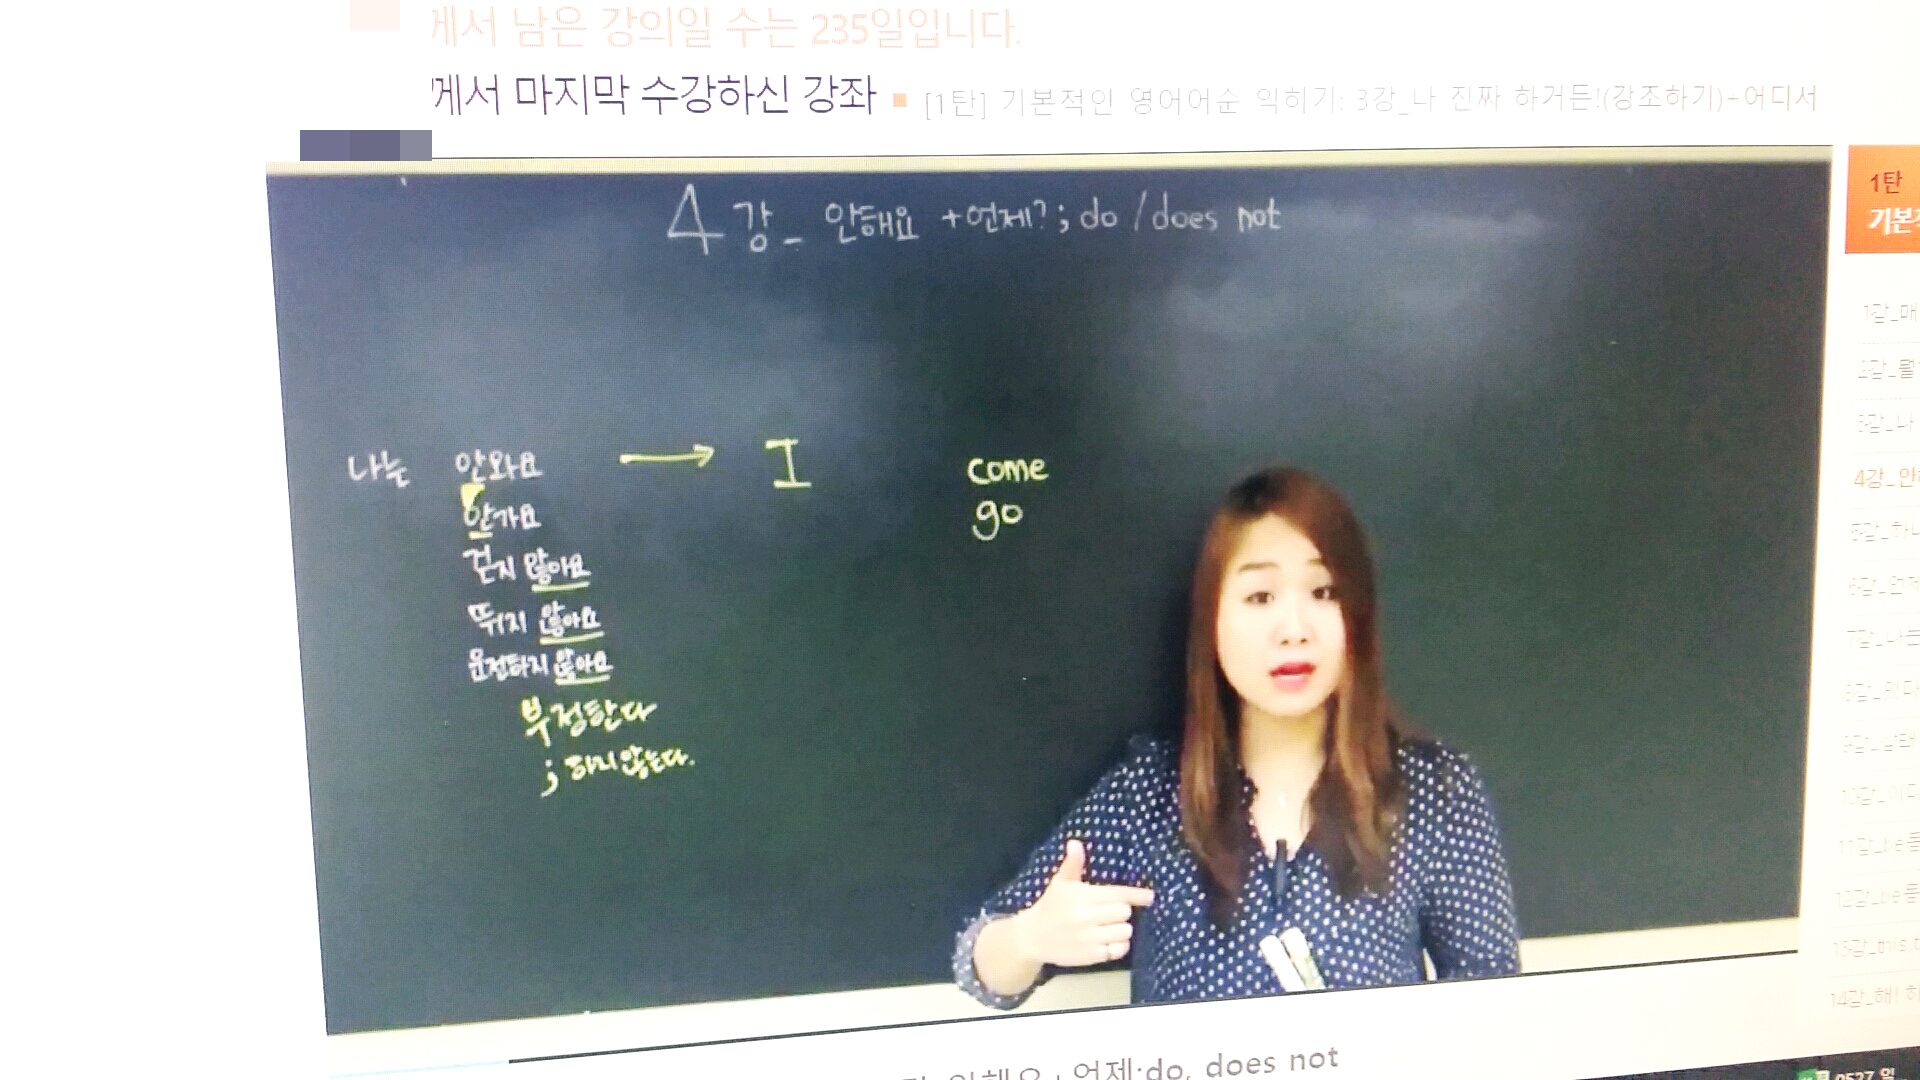 께서 남은 강의일 수는 235일입니다.
께서 마지막 수강하신 강좌 ▪ [1탄] 기본적인 영어어순 익히기: 3강_나 진짜 하거든!(강조하기)+어디서
4강_ 안해요 +언제? ; do / does not
1탄
기본
나는 안와요 → I come
안가요 go
걷지 않아요
뛰지 않아요
운전하지 않아요
부정한다
; 하지 않는다.
1강_매
2강_
3강_나
4강_안
5강_하
6강_언제
7강_나는
10강_어디
11강_be동
12강_be동
13강_this
14강_해! 하
안해요+언제;do, does not